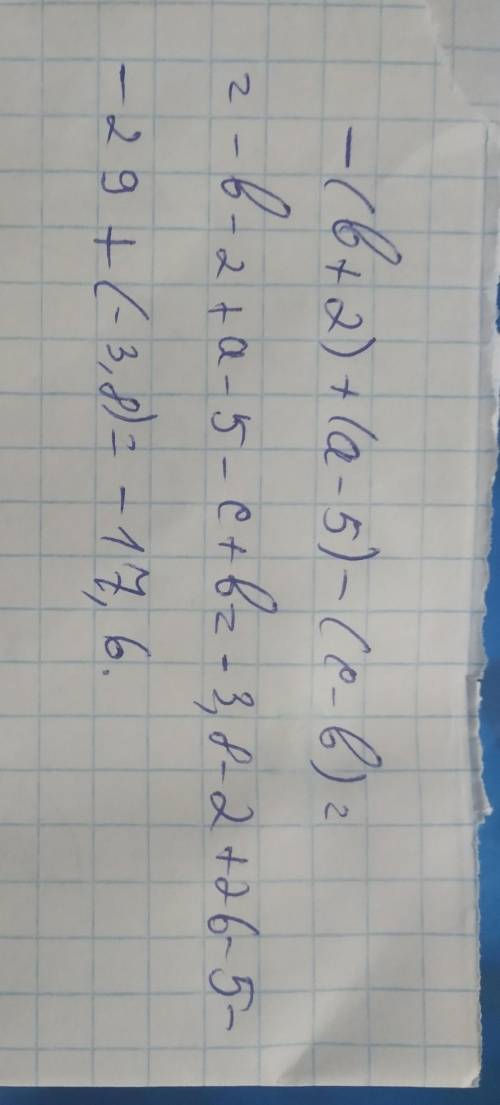 -(b+2)+(a-5)-(c-b)=
=-b-2+a-5-c+b=-3,8-2+26-5-
-29+(-3,8)=-17,6.